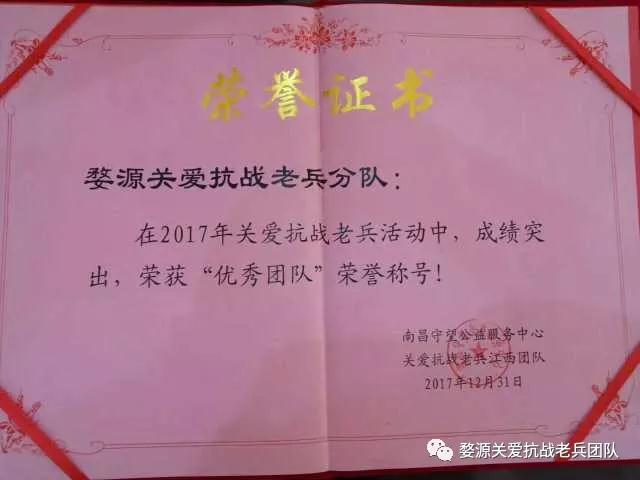 荣誉证书
婺源关爱抗战老兵分队：
在2017年关爱抗战老兵活动中，成绩突
出，荣获“优秀团队”荣誉称号！
南昌守望公益服务中心
关爱抗战老兵江西团队
2017年12月31日
婺源关爱抗战老兵团队